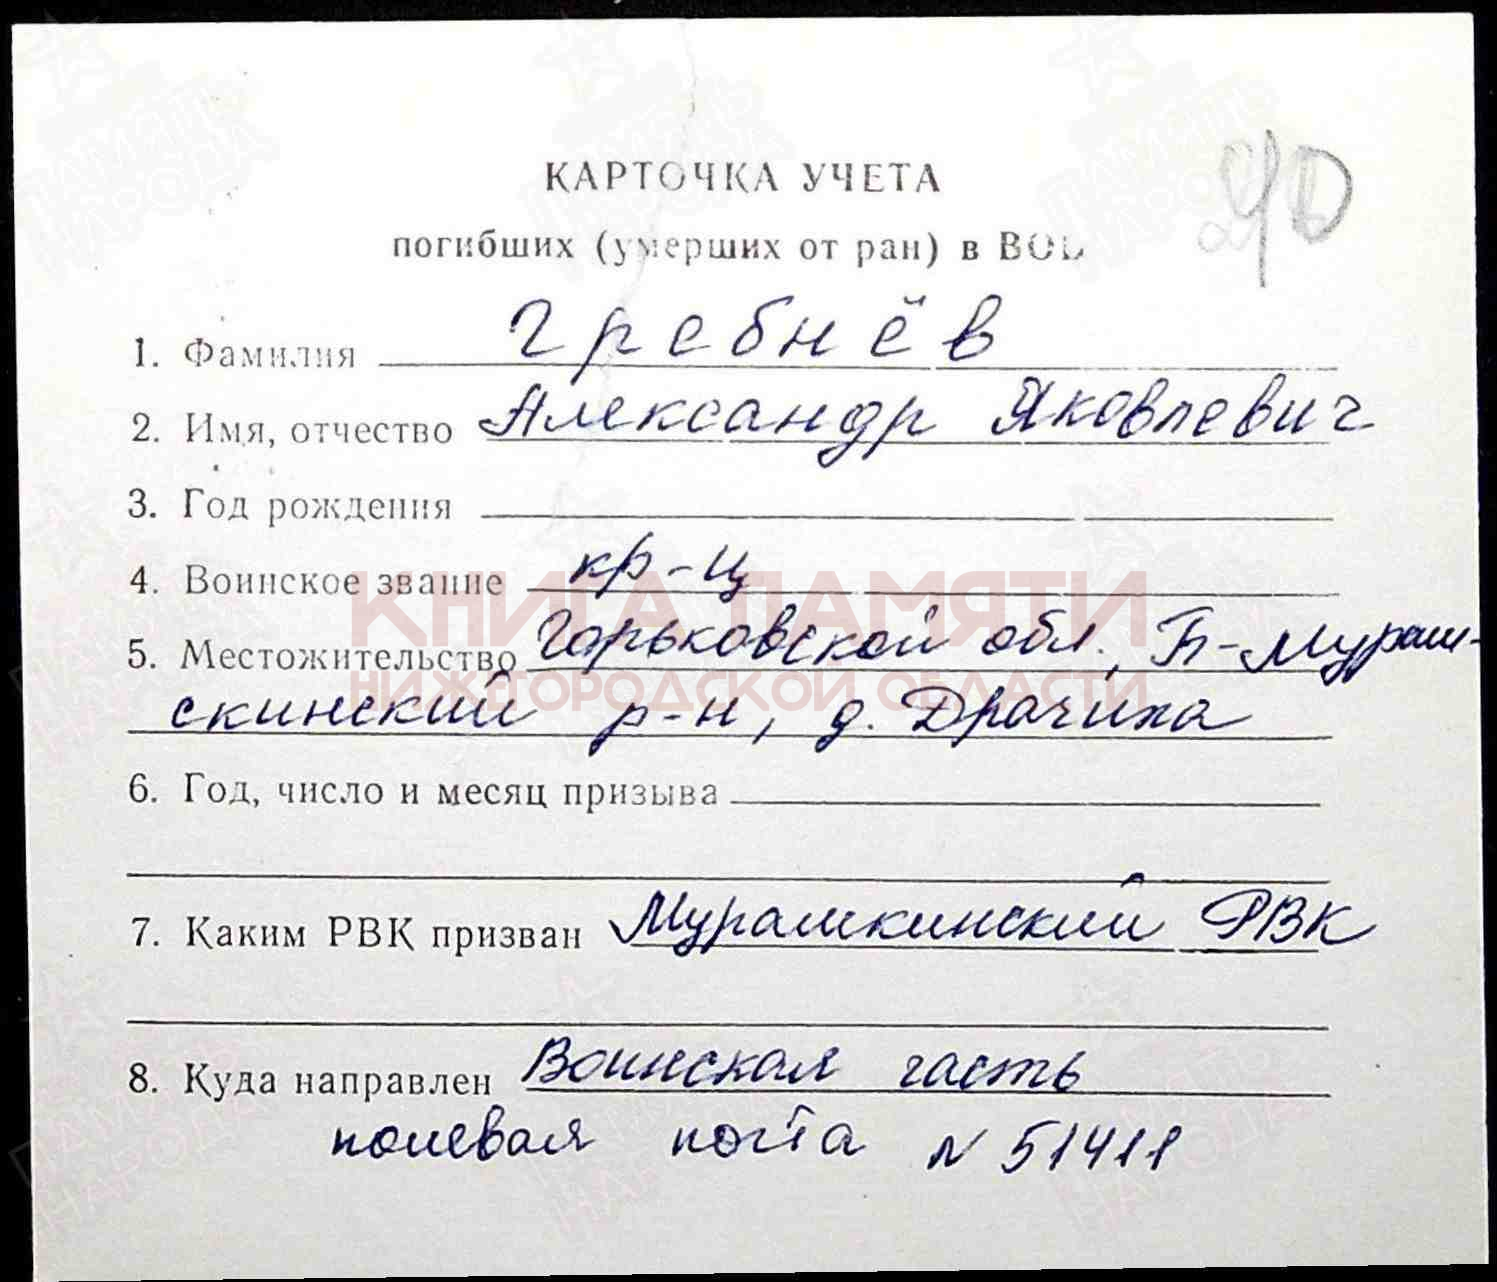 КАРТОЧКА УЧЕТА
погибших (умерших от ран) в ВОВ
1. Фамилия Гребнёв
2. Имя, отчество Александр Яковлевич
3. Год рождения
4. Воинское звание кр-ц
КНИГА ПАМЯТИ
5. Местожительство Горьковской обл., Б-Мураш-
НИЖЕГОРОДСКОЙ ОБЛАСТИ
скинский р-н, д. Драчиха
6. Год, число и месяц призыва
7. Каким РВК призван Мурашкинский РВК
8. Куда направлен Воинская часть
полевая почта N 51411